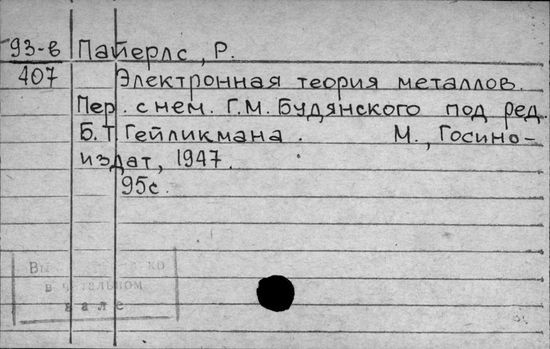 93-в Пайерлс, Р.
407 Электронная теория металлов.
Пер. с нем. Г.М. Будянского под ред.
Б.Т Гейликмана. М., Госино-
издат, 1947.
95с.
в читальном
зале